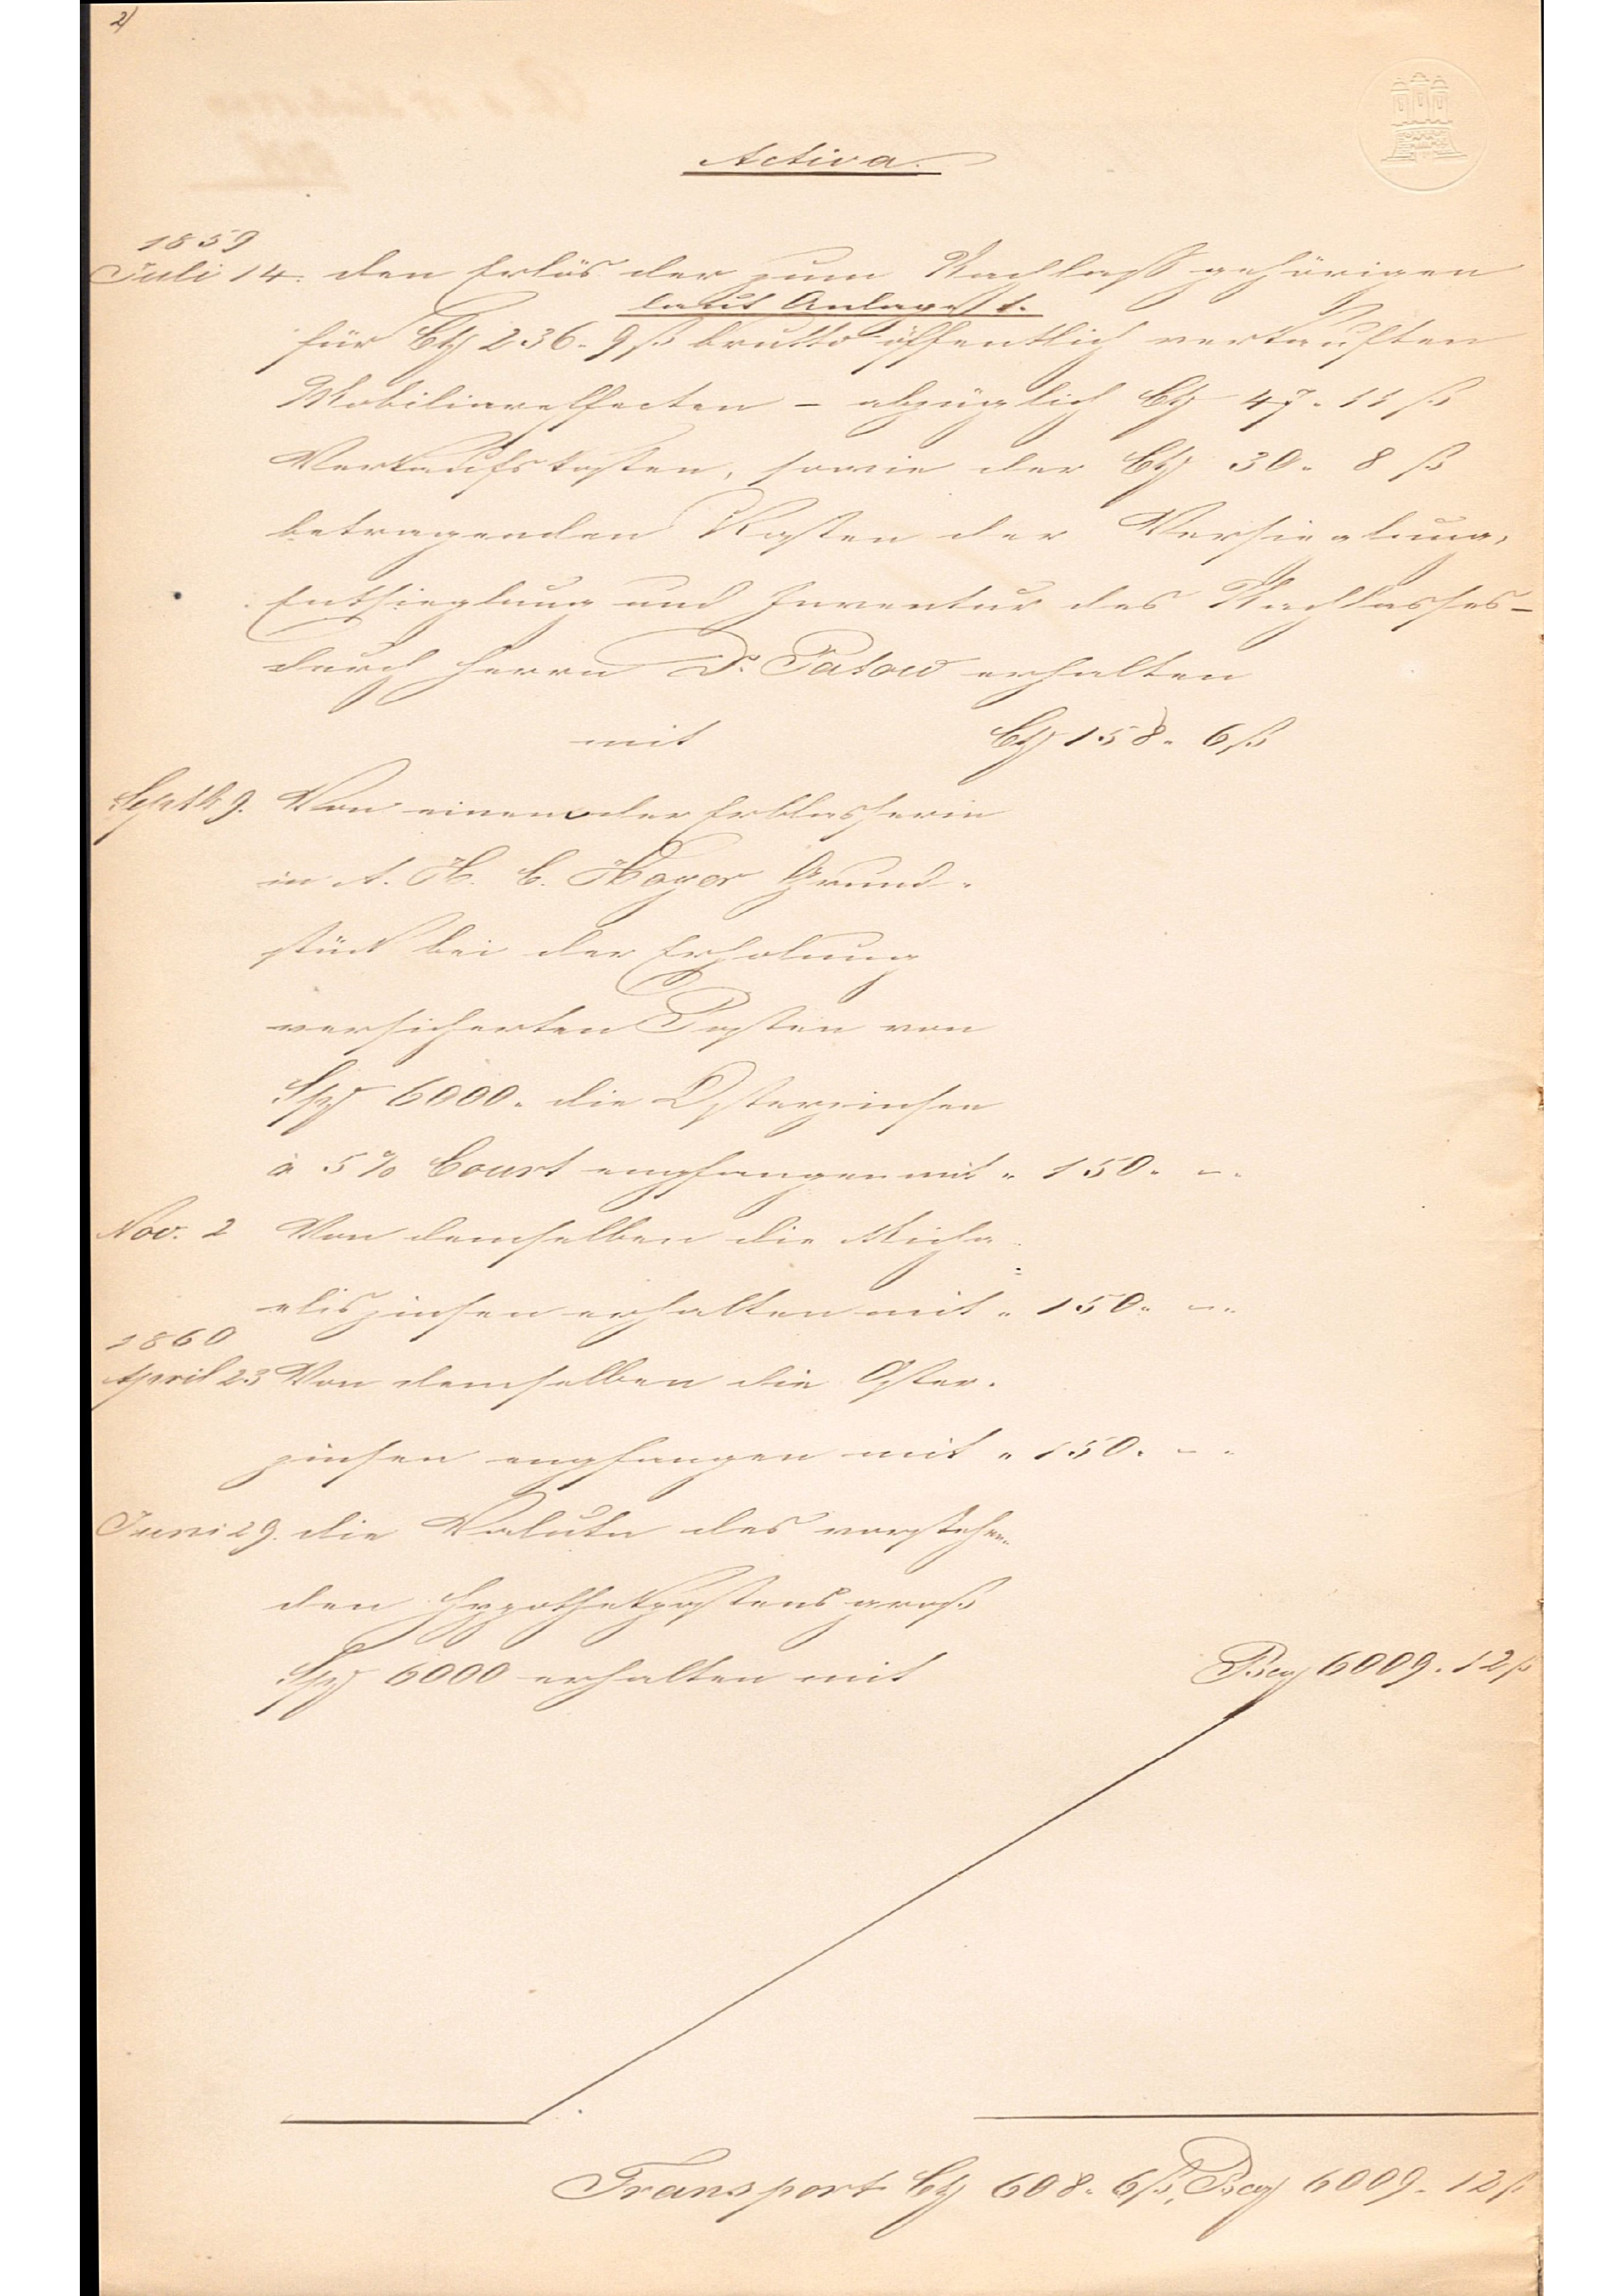 2)
Activa.
1859
Juli 14. den Erlös der zum Nachlaß gehörigen
laut Anlage 1.
für C𝓂 236. 9 ß brutto öffentlich verkauften
Mobiliareffecten – abzüglich C𝓂 47. 11 ß
Verkaufskosten, sowie der C𝓂 30. 8 ß
betragenden Kosten der Versieglung,
Entsieglung und Inventur des Nachlasses –
durch Herrn Dr. Patow erhalten
mit C𝓂 158. 6 ß
Septb 9. Von einem der Erblasserin
in A. H. C. Hoyer Grund-
stück bei der Erholung
versicherten Posten von
Sp𝓂 6000. die Osterzinsen
à 5% Court empfangen mit " 150. – "
Nov. 2 Von demselben die Micha-
eliszinsen erhalten mit " 150. – "
1860
April 23 Von demselben die Oster-
zinsen empfangen mit " 150. – "
Juni 29. die Valuta des vorstehen-
den Hypothekpostens groß
Sp𝓂 6000 erhalten mit Bco𝓂 6009. 12 ß
Transport C𝓂 608. 6 ß, Bco𝓂 6009. 12 ß